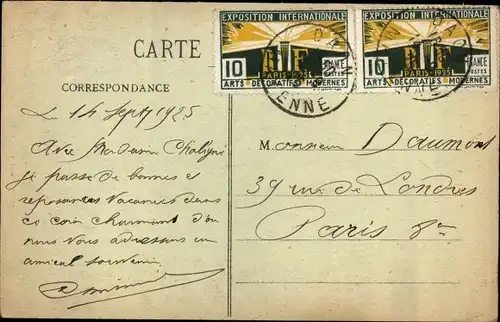 CARTE
CORRESPONDANCE
Le 14 Sept 1925
Avec Madame Chaligné
je passe de bonnes et
reposantes Vacances dans
ce coin charmant d'où
nous Vous adressons un
amical souvenir
EXPOSITION INTERNATIONALE
RF
10 PARIS-1925 FRANCE
POSTES
ARTS DECORATIFS MODERNES
EXPOSITION INTERNATIONALE
RF
10 PARIS-1925 FRANCE
POSTES
ARTS DECORATIFS MODERNES
ENNE
Monsieur Daumont
39 rue de Londres
Paris 8e